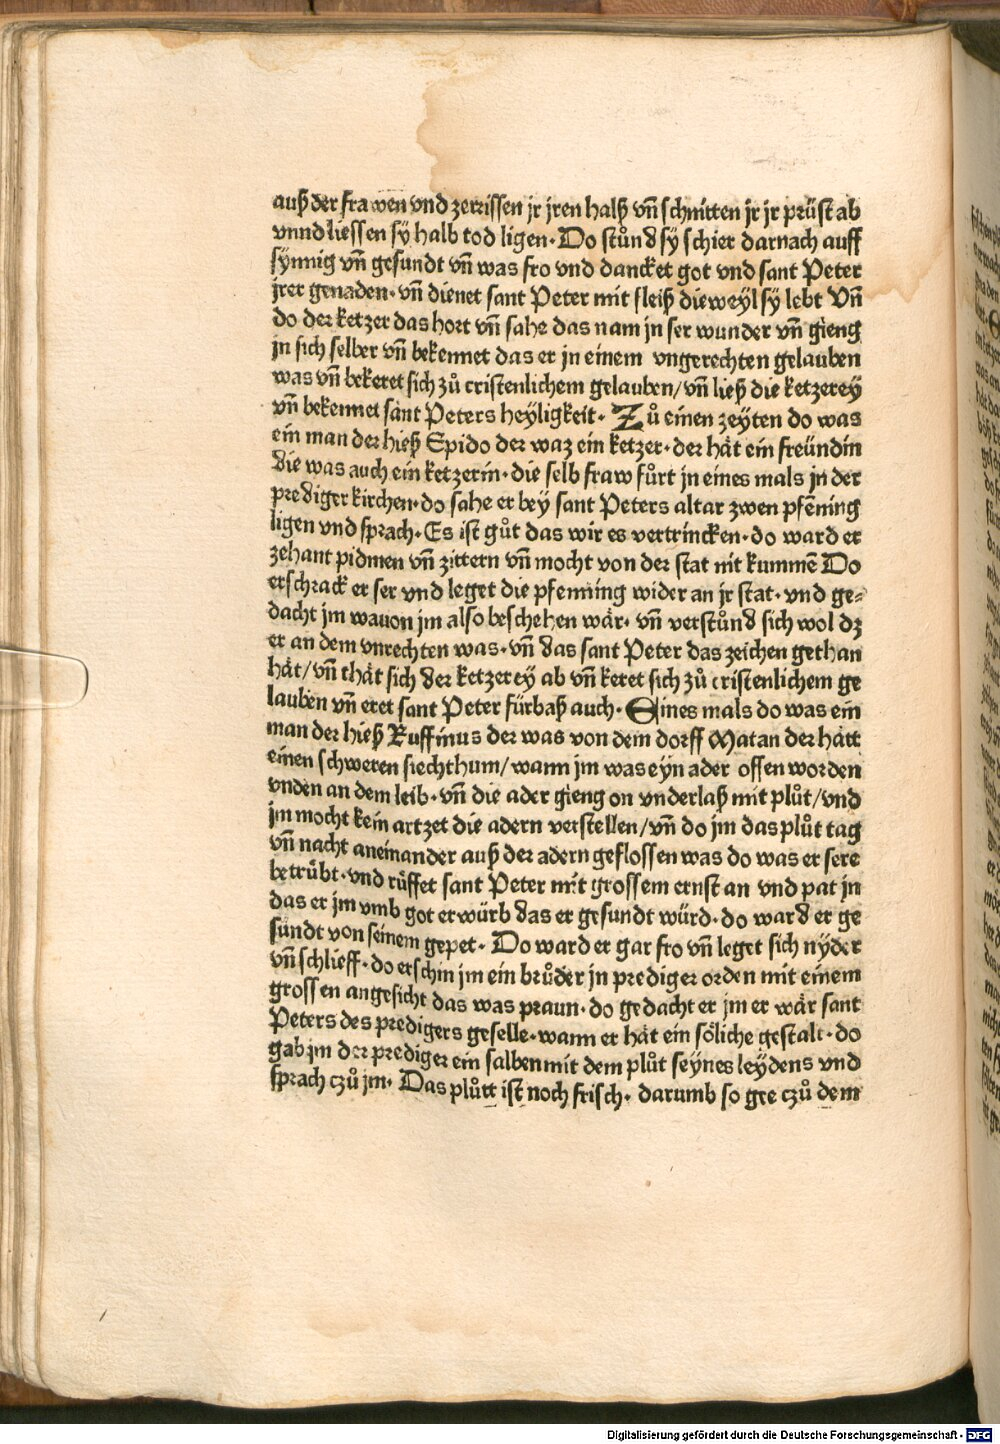 auß der frawen vnd zerrissen jr jren halß vñ schnitten jr jr prüst ab
vnnd liessen sÿ halb tod ligen. Do stůnd sÿ schier darnach auff
sÿnnig vñ gesundt vñ was fro vnd dancket got vnd sant Peter
jrer genaden. vñ dienet sant Peter mit fleiß dieweÿl sÿ lebt Vñ
do der ketzer das hort vñ sahe das nam jn ser wunder vñ gieng
jn sich selber vñ bekennet das er jn einem vngerechten gelauben
was vñ bekeret sich zů cristenlichem gelauben/ vñ ließ die ketzereÿ
vñ bekennet sant Peters heÿligkeit. Zů einen zeÿten do was
ein man der hieß Spido der waz ein ketzer. der hät ein freündin
die was auch ein ketzerin. die selb fraw fůrt jn eines mals jn der
prediger kirchen. do sahe er beÿ sant Peters altar zwen pfēning
ligen vnd sprach. Es ist gůt das wir es vertrincken. do ward er
zehant pidmen vñ zittern vñ mocht von der stat nit kummē Do
erschrack er ser vnd leget die pfenning wider an jr stat. vnd ge⸗
dacht jm wauon jm also beschehen wär. vñ verstůnd sich wol dz
er an dem vnrechten was. vñ das sant Peter das zeichen gethan
hät/ vñ thät sich der ketzereÿ ab vñ keret sich zů cristenlichem ge
lauben vñ eret sant Peter fürbaß auch. Eines mals do was ein
man der hieß Ruffinus der was von dem dorff Matan der hätt
einen schweren siechthum/ wann jm was eÿn ader offen worden
vnden an dem leib. vñ die ader gieng on vnderlaß mit plůt/ vnd
jm mocht kein artzet die adern verstellen/ vñ do jm das plůt tag
vñ nacht aneinander auß der adern geflossen was do was er sere
betrůbt. vnd růffet sant Peter mit grossem ernst an vnd pat jn
das er jm vmb got erwürb das er gesundt würd. do ward er ge
sundt von seinem gepet. Do ward er gar fro vñ leget sich nÿder
vñ schlieff. do erschin jm ein brůder jn prediger orden mit einem
grossen angesicht das was praun. do gedacht er jm er wär sant
Peters des predigers geselle. wann er hät ein söliche gestalt. do
gab jm der prediger ein salben mit dem plůt seÿnes leÿdens vnd
sprach czů jm. Das plůtt ist noch frisch. darumb so gee czů dem
Digitalisierung gefördert durch die Deutsche Forschungsgemeinschaft - DFG